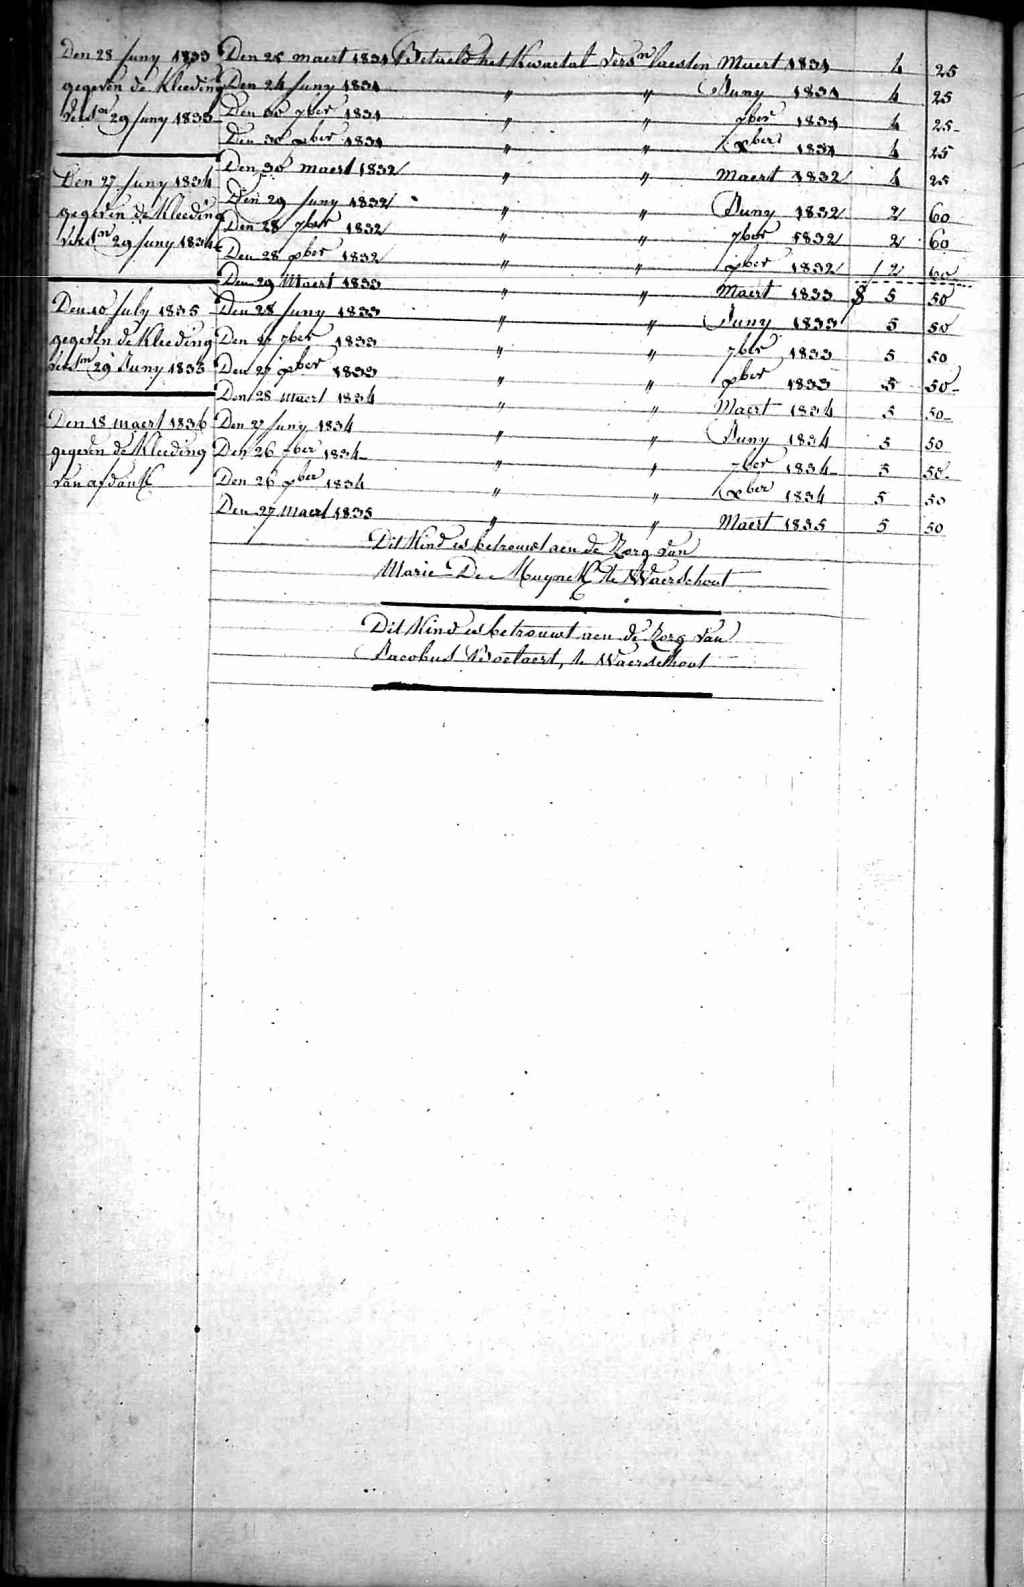 Den 28 Juny 1833
gegeven de Kleeding
29 Juny 1833
Den 27 Juny 1834
gegeven de Kleeding
29 Juny 1834
Den 10 July 1835
gegeven de Kleeding
29 Juny 1835
Den 18 maert 1836
gegeven de Kleeding
van afdank
Den 25 maert 1831 Betaeld het Kwartal versn laesten Maert 1831 4 25
Den 24 Juny 1831 " " Juny 1831 4 25
Den 30 7ber 1831 " " 7ber 1831 4 25
Den 30 xber 1831 " " xber 1831 4 25
Den 30 maert 1832 " " Maert 1832 4 25
Den 29 Juny 1832 " " Juny 1832 2 60
Den 28 7ber 1832 " " 7ber 1832 2 60
Den 28 xber 1832 " " xber 1832 2 60
Den 29 Maert 1833 " " Maert 1833 5 50
Den 28 Juny 1833 " " Juny 1833 5 50
Den 27 7ber 1833 " " 7ber 1833 5 50
Den 27 xber 1833 " " xber 1833 5 50
Den 28 maert 1834 " " Maert 1834 5 50
Den 27 Juny 1834 " " Juny 1834 5 50
Den 26 7ber 1834 " " 7ber 1834 5 50
Den 26 xber 1834 " " xber 1834 5 50
Den 27 maert 1835 " " Maert 1835 5 50
Dit Kind is betrouwt aen de Zorg van
Marie De Muynck te Waerschoot
Dit Kind is betrouwt aen de Zorg van
Jacobus te Waerschoot